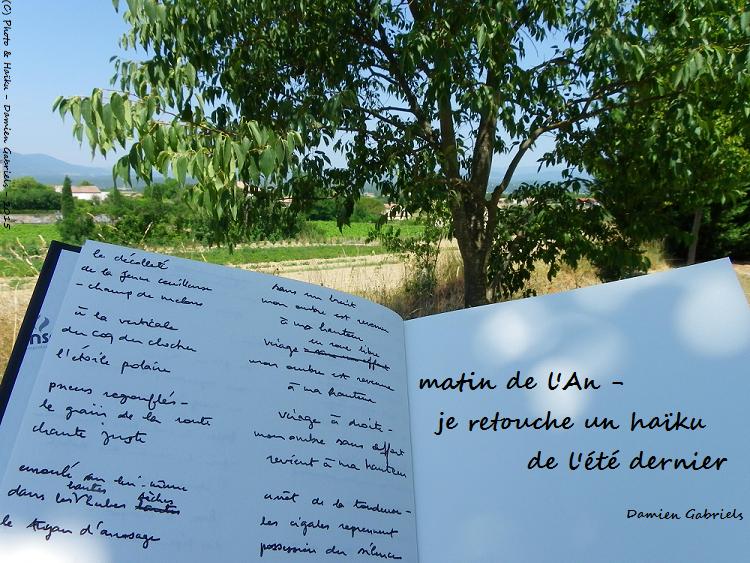 (C) Photo & Haïku - Damien Gabriels - 2015
le décolleté
de la jeune cueilleuse
- champ de melons
à la verticale
du coq du clocher
l'étoile polaire
pneus regonflés -
le grain de la route
chante juste
enroulé sur lui-même
hautes sèches
dans les herbes hautes
le tuyau d'arrosage
sans un bruit
mon ombre est revenue
à ma hauteur
en roue libre
virage sans effort
mon ombre est revenue
à ma hauteur
virage à droite -
mon ombre sans effort
revient à ma hauteur
arrêt de la tondeuse -
les cigales reprennent
possession du silence
matin de l'An -
je retouche un haïku
de l'été dernier
Damien Gabriels